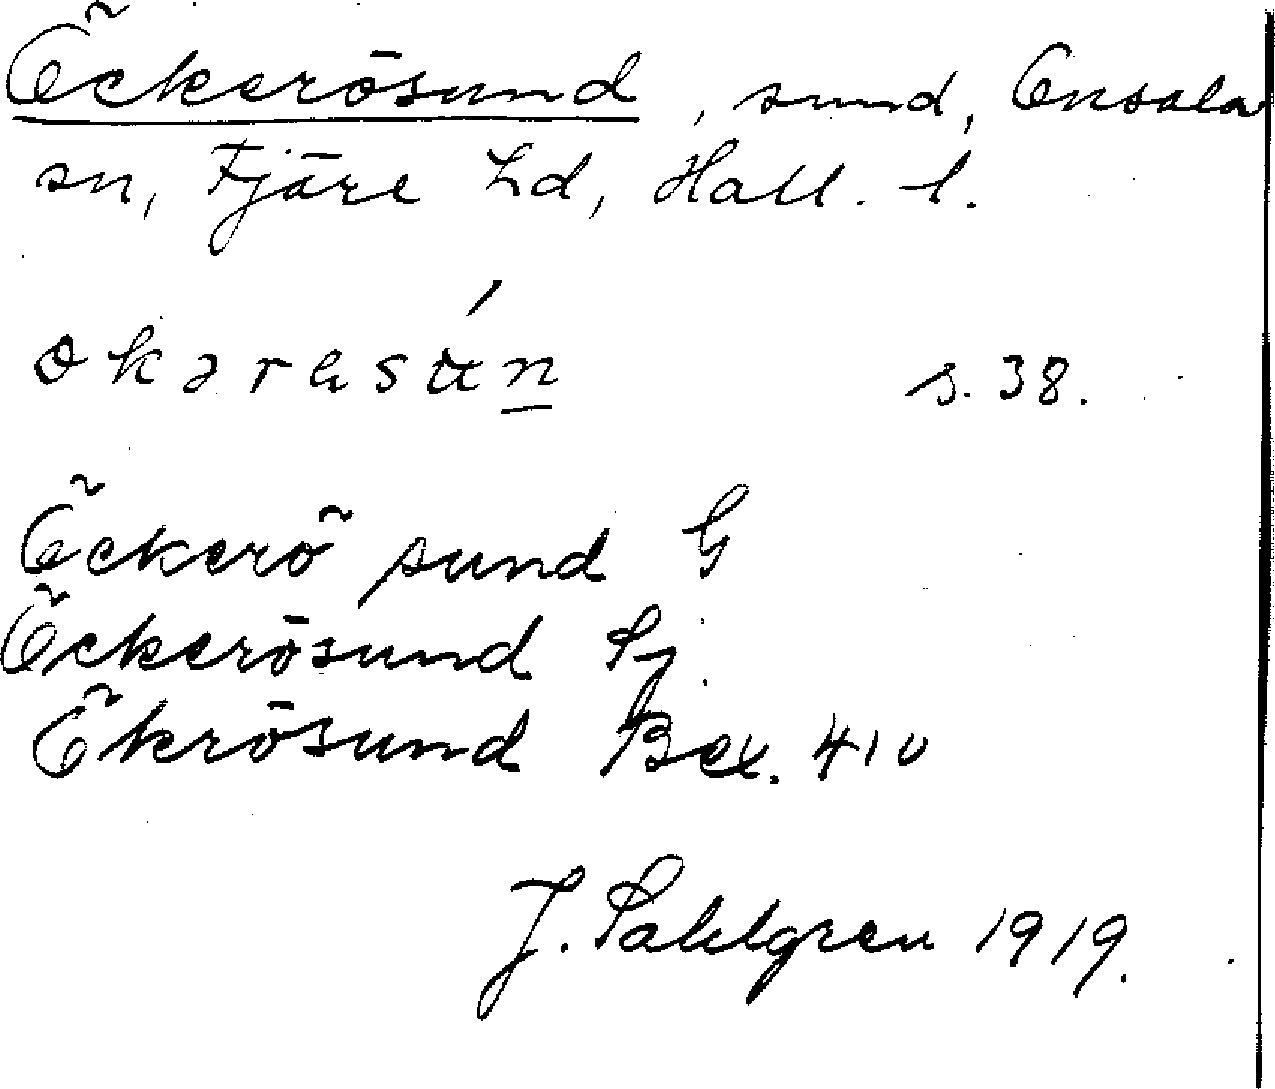 Öckerösund, sund, Onsala
sn, Fjäre hd, Hall. l.
s. 38.
Öckerö sund G
Öckerösund Sj
Ökrösund Bex. 410
J. Sahlgren 1919.